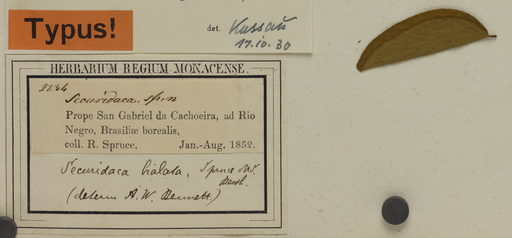 Typus!
det.
17.10.80
HERBARIUM REGIUM MONACENSE.
Securidaca. sp. n
Prope San Gabriel da Cachoeira, ad Rio
Negro, Brasiliæ borealis,
coll. R. Spruce, Jan.-Aug. 1852.
Securidaca bialata, Spruce
Benth.
(determ A. W. Bennett)